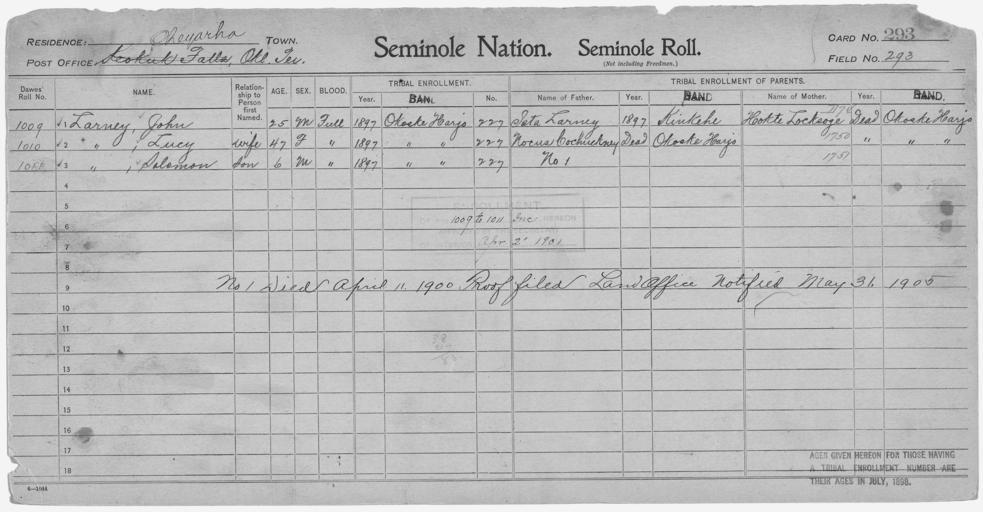 RESIDENCE: Cheyarha TOWN.
POST OFFICE. Keokuk Falls, Okl. Ter.
Seminole Nation. Seminole Roll.
(Not including Freedmen.)
CARD NO. 293
FIELD NO. 293
Dawes' Roll No. NAME. Relationship to Person first Named. AGE. SEX. BLOOD. TRIBAL ENROLLMENT. TRIBAL ENROLLMENT OF PARENTS.
Year. BAND. No. Name of Father. Year. BAND Name of Mother. Year. BAND.
1009 1 Larney, John 25 M Full 1897 Okoske Harjo 227 Ista Larney 1897 Kinkehe Hokte Locksoge Dead Okoske Harjo
1010 2 " , Lucy wife 47 F " 1897 " " 227 Nocus Cochuckney Dead Okoske Harjo 1750 " " "
1011 3 " , Solomon son 6 M " 1897 " " 227 No 1 1751
4
5
ENROLLMENT
6 1009 to 1011 Inc HEREON
7 Apr 2" 1901
8
9 No 1 Died April 11, 1900 Proof filed Land Office Notified May 31, 1905
10
11
12
13
14
15
16
17
18
AGES GIVEN HEREON FOR THOSE HAVING
A TRIBAL ENROLLMENT NUMBER ARE
THEIR AGES IN JULY, 1898.